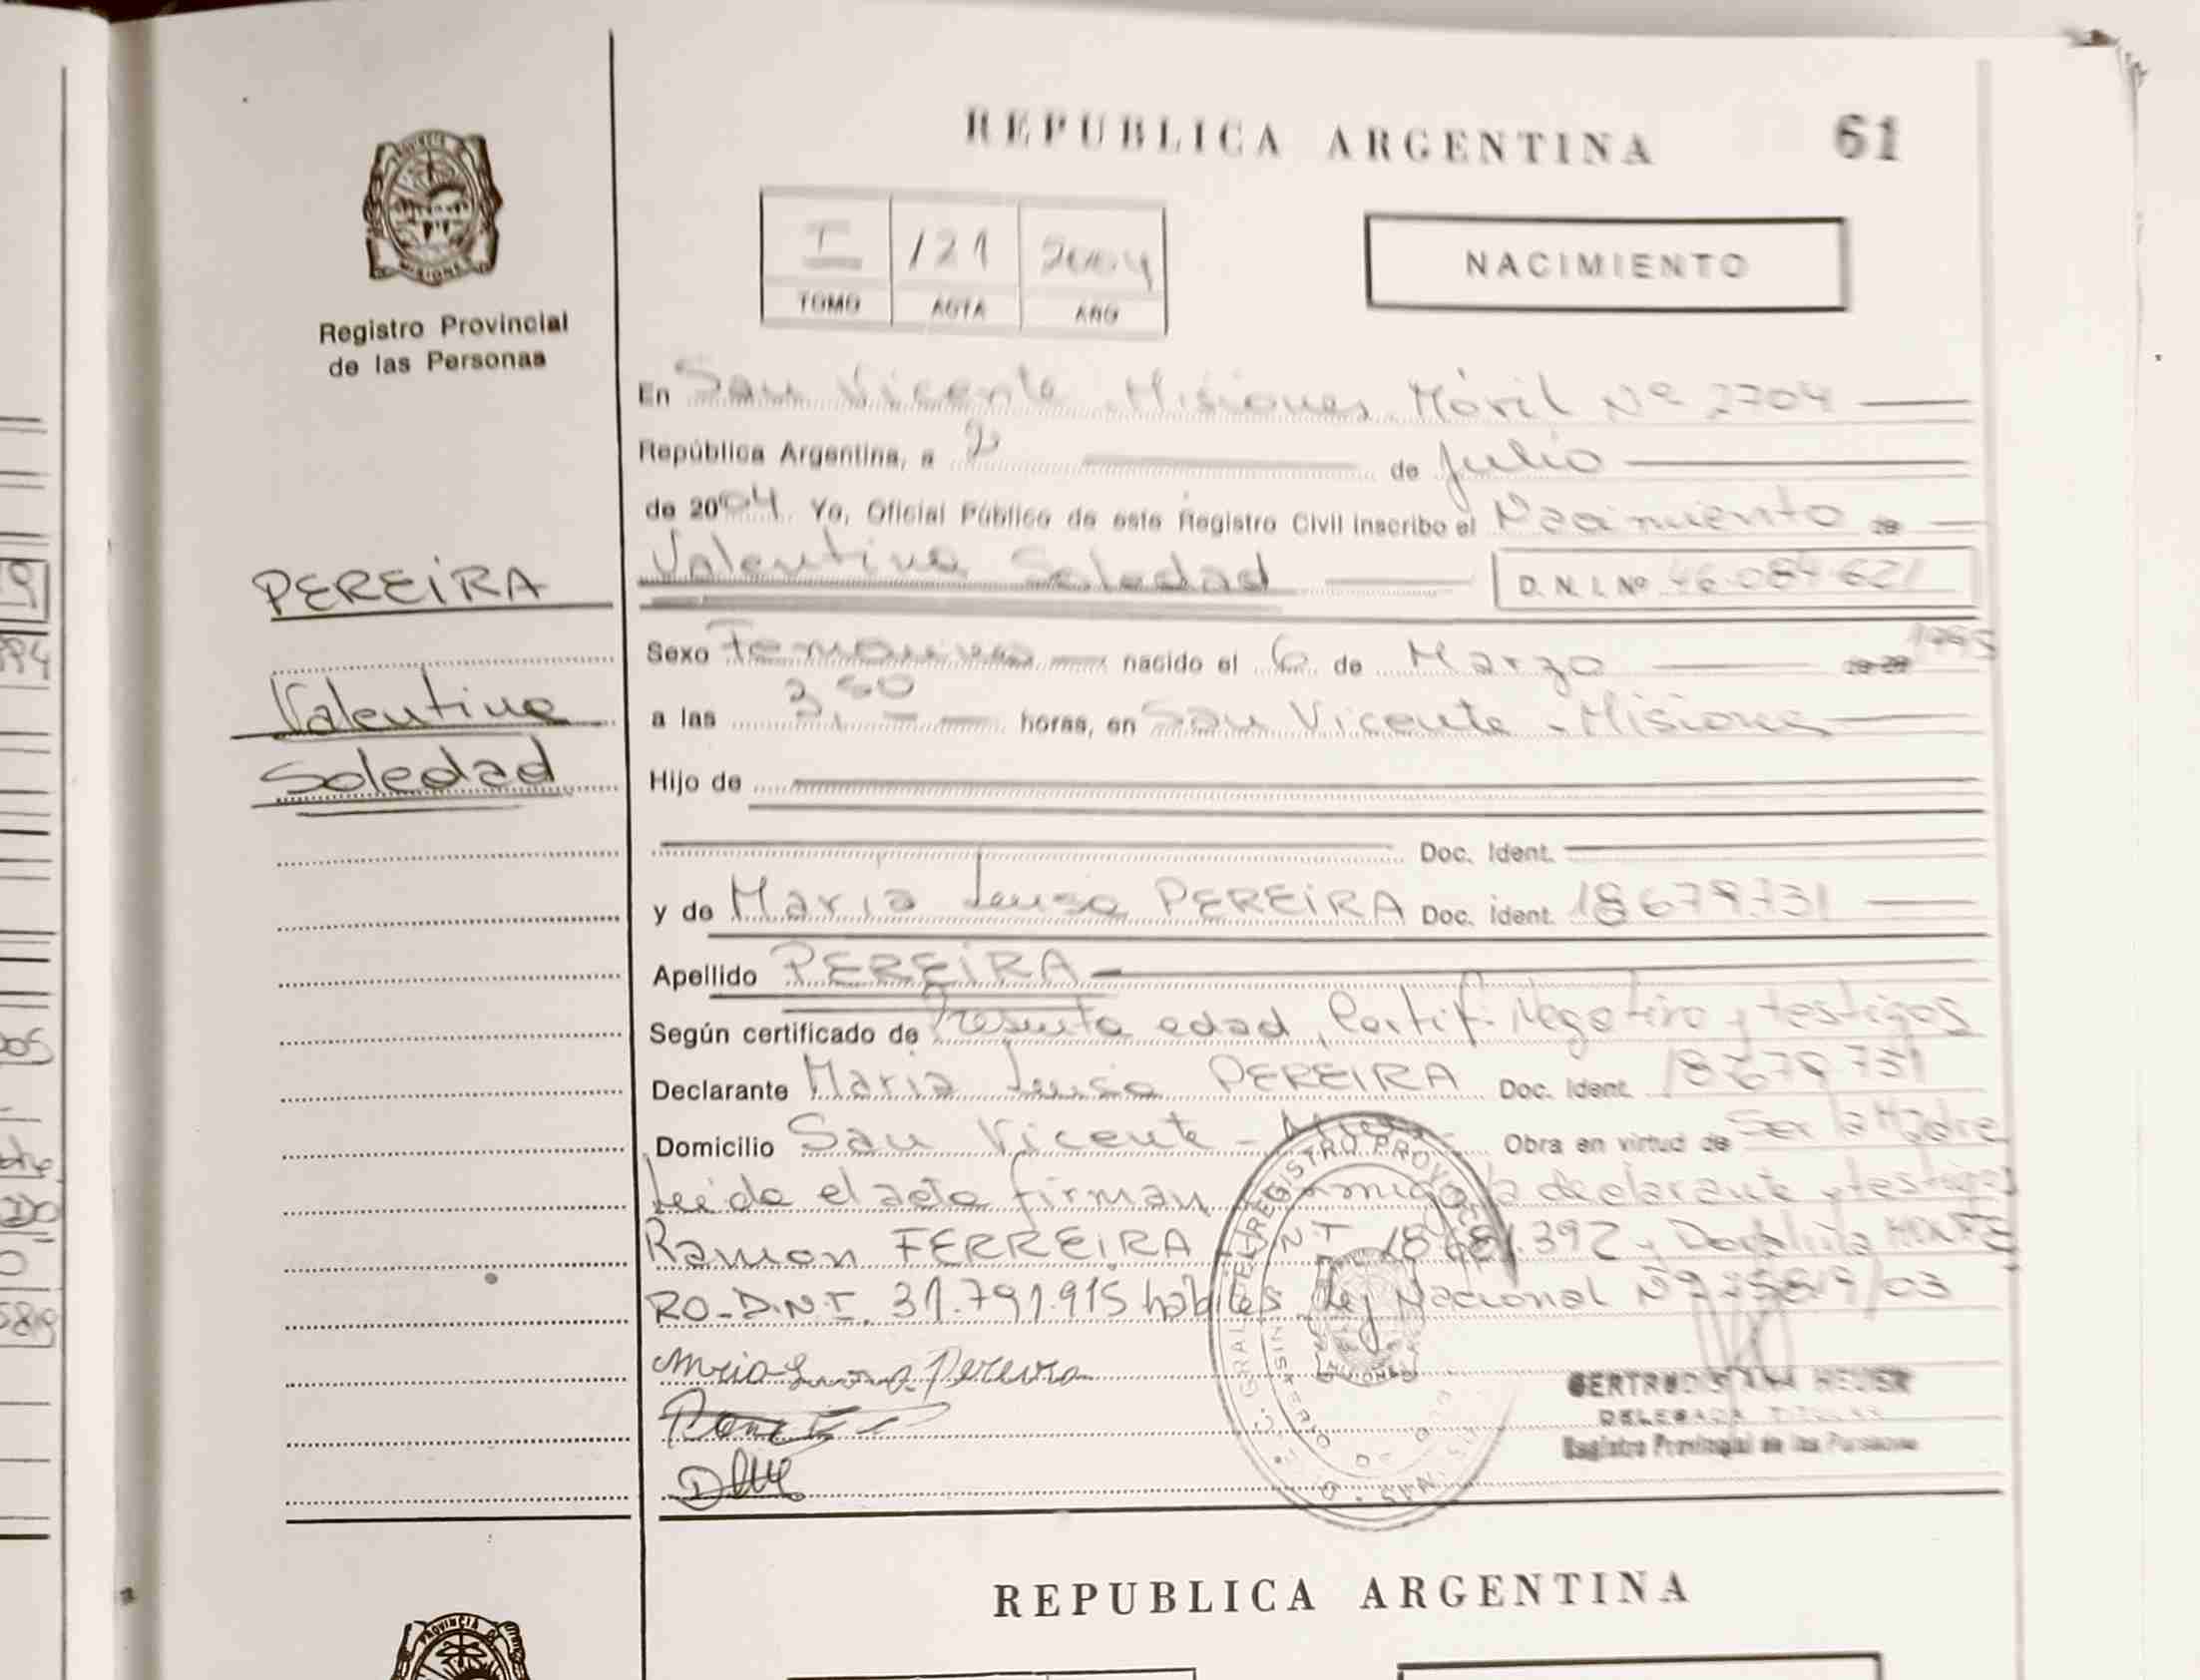 REPUBLICA ARGENTINA 61
I 121 2004
TOMO ACTA AÑO
NACIMIENTO
Registro Provincial
de las Personas
En San Vicente Misiones Móvil Nº 2704
República Argentina, a 2 de Julio
de 2004 Yo, Oficial Público de este Registro Civil inscribo el Nacimiento de
Valentina Soledad D. N. I. Nº 46.084.621
PEREiRA
Valentina
Soledad
Sexo Femenino nacido el 6 de Marzo
a las horas, en San Vicente - Misiones
Hijo de
Doc. Ident.
y de Maria Luisa PEREiRA Doc. Ident. 18.679.731
Apellido PEREiRA
Según certificado de Presunta edad, Certif. Negativo y testigos
Declarante Maria Luisa PEREIRA Doc. Ident. 18.679.731
Domicilio San Vicente - Mnes. Obra en virtud de Ser la Madre
Leída el acta firman conmigo la declarante y testigos
Ramon FERREiRA DNI 18.681.392 y MONTE
RO - D.N.I. 31.791.915 hábiles. Ley Nacional Nº 25819/03
Maria Luisa Pereira
GERTRUDIS ANA
DELEGADA TITULAR
Registro Provincial de las Personas
REGISTRO PROVINCIAL
MISIONES
REPUBLICA ARGENTINA
PROVINCIA DE